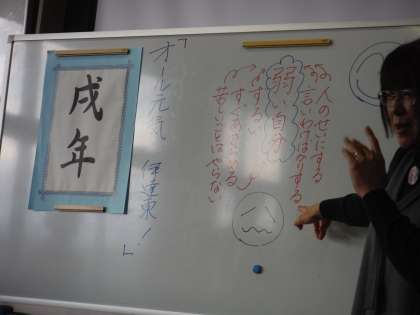 戌年
「オール元気
伊達東!」
人のせいにする
言いわけばかりする
弱い自分
ずるい
すぐあきらめる
苦しいことはやらない